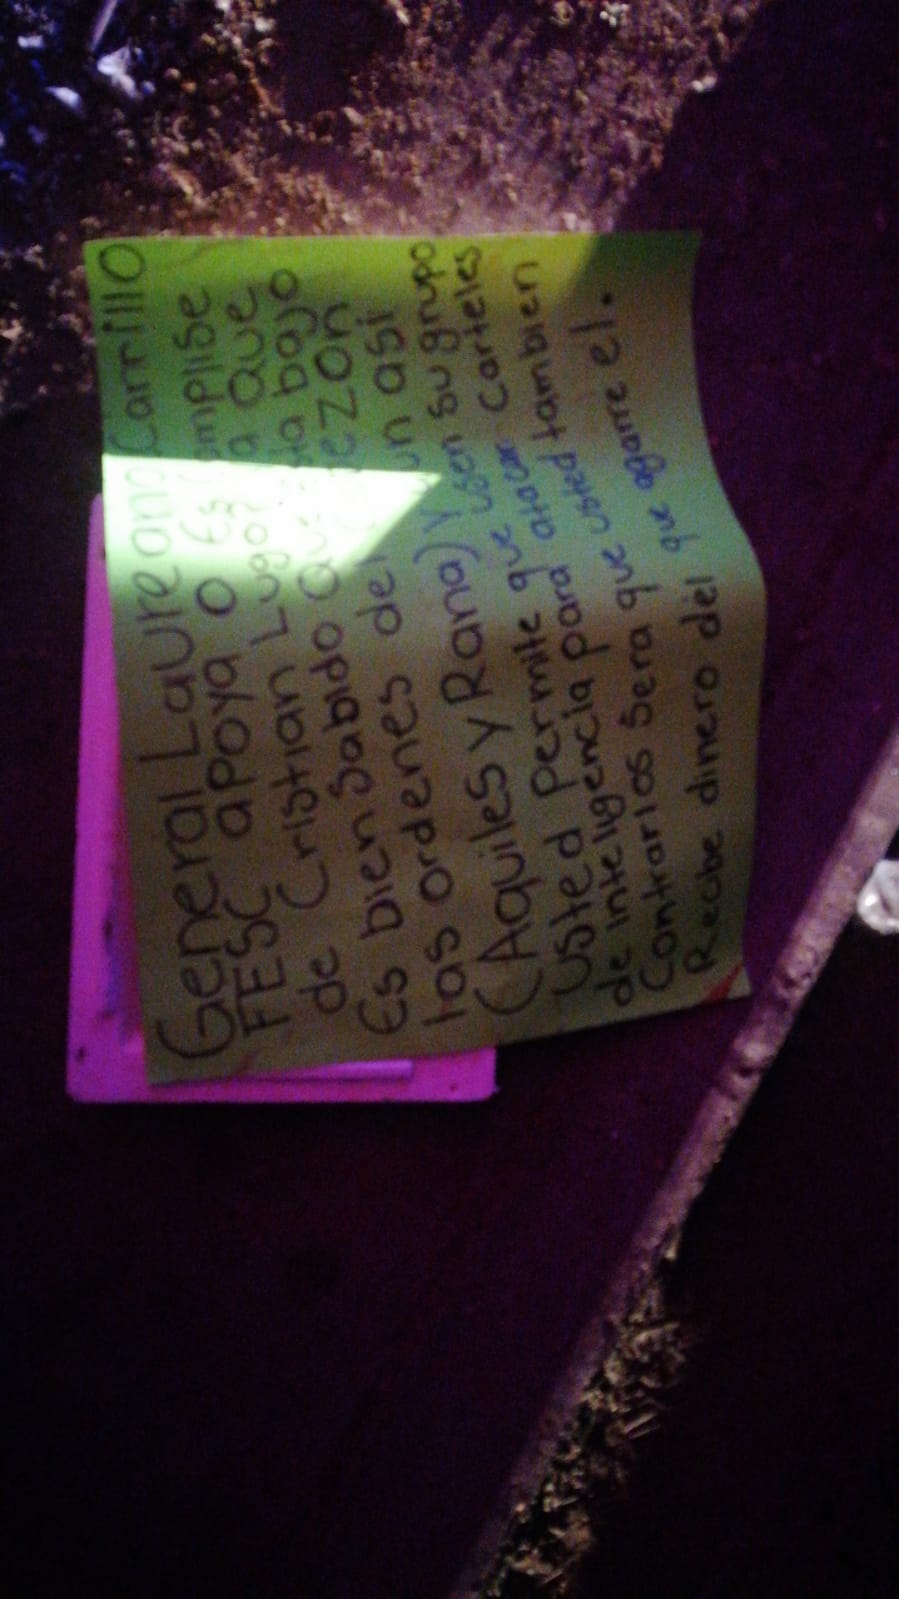 General Laureano Carrillo
FESC apoya o es Complise
de Cristian Lugo? Ya que
Es bien sabido que esta bajo
las ordenes del Cabezon
(Aquiles y Rana) y aun asi
Usted permite que usen su grupo
de inteligencia para atacar carteles
Contrarios sera que usted tambien
Recibe dinero del que agarre el.